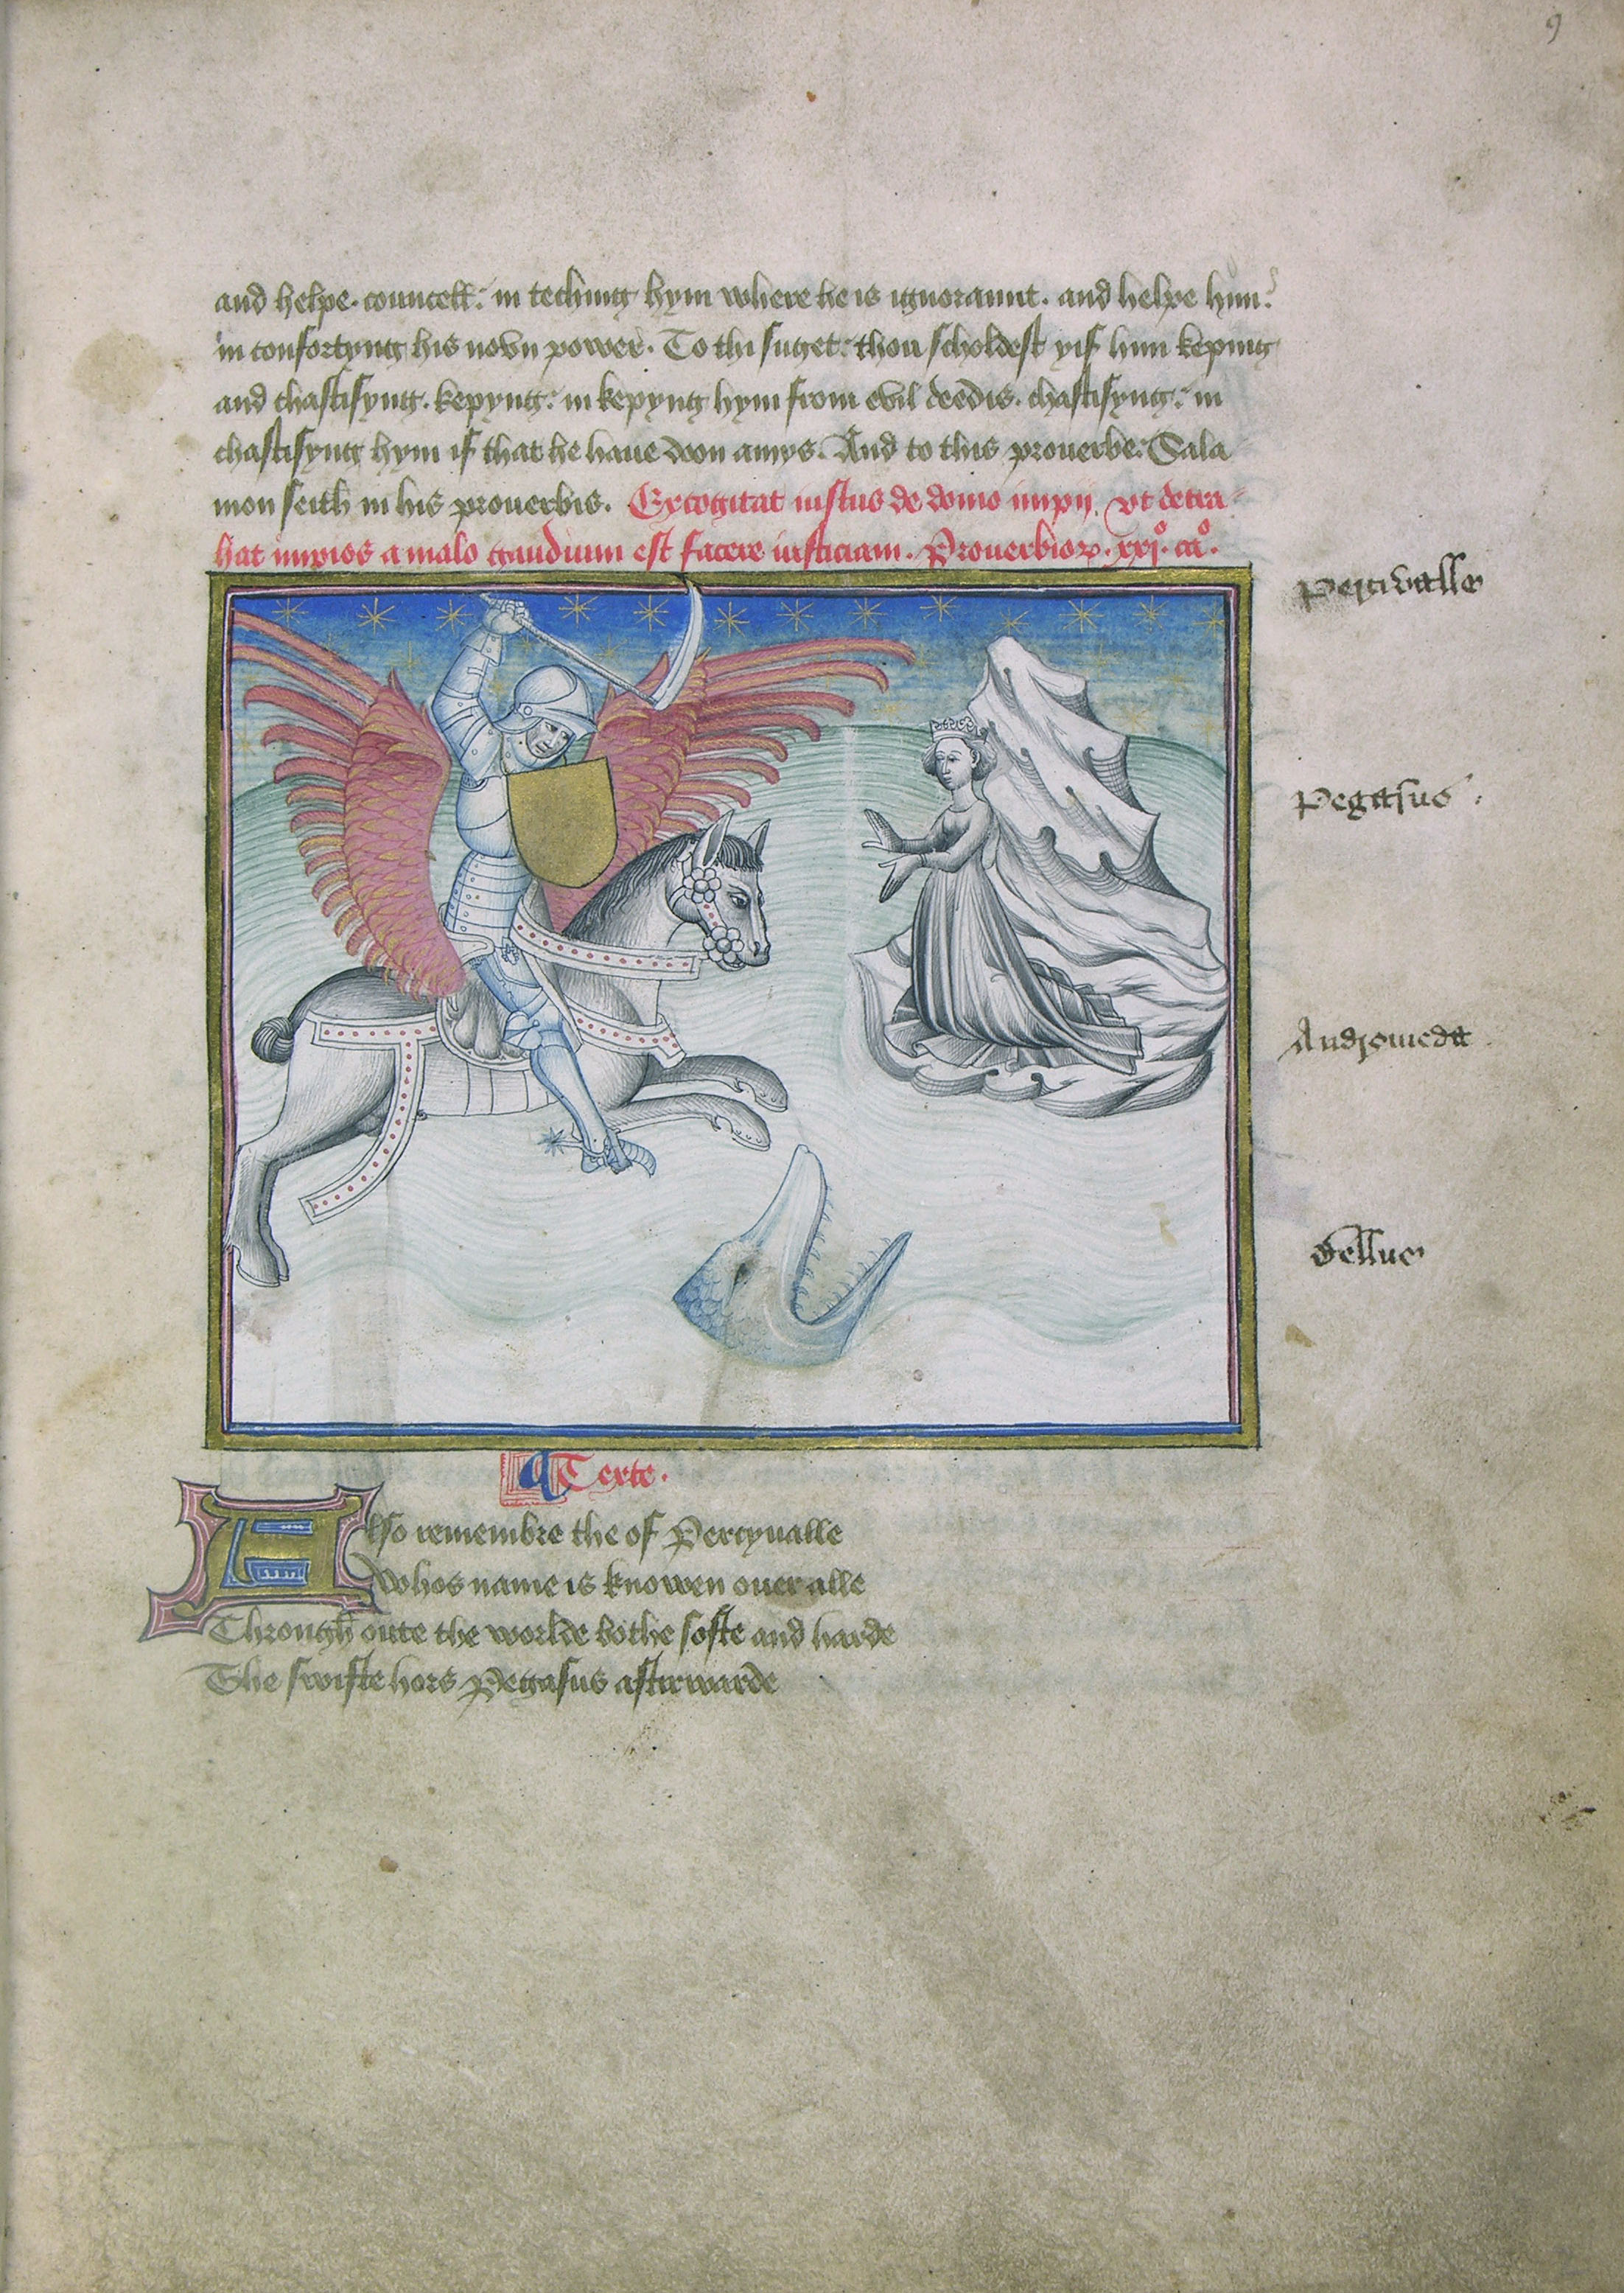 9
and helpe. councell: in teching hym where he is ignoraunt. and helpe hym:
in confortyng his novn power. To thi suget: thou scholdest yif him keping
and chastisyng. kepyng: in kepyng hym from evil deedis. chastisyng: in
chastisyng hym if that he haue doon amys. And to this prouerbe: Sala
mon seith in his prouerbis. Excogitat iustus de domo impij. vt detra-
hat impios a malo gaudium est facere iusticiam. Prouerbior. xxjº. caº.
Percivalle
Pegasus
Andromeda
Bellue
Texte.
Also remembre the of Percyualle
Whos name is knowen ouer alle
Through oute the worlde bothe softe and harde
The swifte hors Pegasus aftirwarde